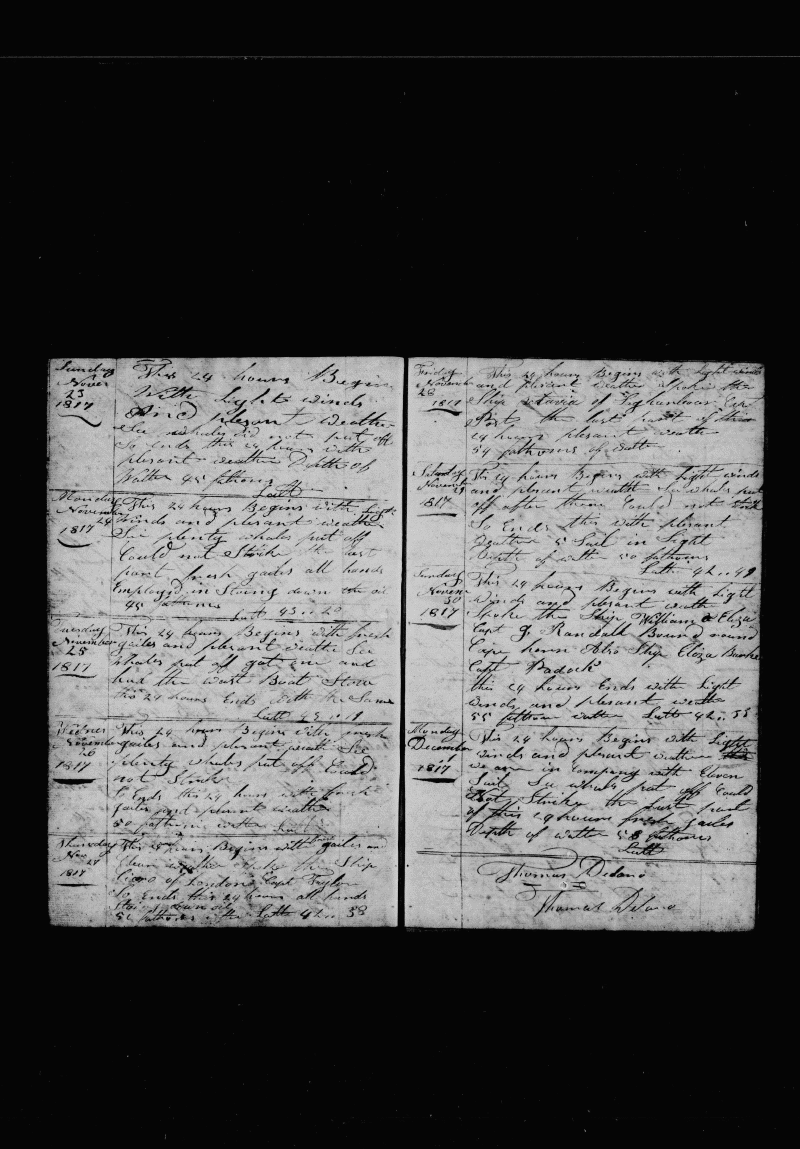 Sunday
Novem
23
1817
This 24 hours Begins
With Light winds
And plesent Weather
See whales not put off
So ends this 24 hours with
plesent weather Depth of
Water 45 fathoms
Latt
Monday
November
24
1817
This 24 hours Begins with light
winds and plesent weather
See plenty whales put off
Could not Strike the last
part fresh gailes all hands
Employed in Stoing down the oil
45 fathoms
Latt 43 .. 20
Tuesday
November
25
1817
This 24 hours Begins with fresh
gailes and plesent weather See
whales put off got one and
had the wast Boat Stove
this 24 hours Ends with the Same
Latt 43 .. 19
Wednes
November
26
1817
This 24 hours Begins with fresh
gailes and plesent weath See
plenty whales put off Could
not Strike
So Ends this 24 hours with fresh
gailes and plesent weather
50 fathoms water Latt
Thursday
Nov 27
1817
This 24 hours Begins with gailes and
Clean weather Spoke the Ship
of London Capt Taylor
So Ends this 24 hours all hands
Stoing down oil
50 fathoms water Latt 42 .. 38
Friday
November
28
1817
This 24 hours Begins with Light winds
and plesent weather Spoke the
Ship of Capt
the last part of this
24 hours plesent weath
54 fathoms of water
Saturday
November
29
1817
This 24 hours Begins with Light winds
and plesent weath See whales put
off after them Could not
So Ends this with plesent
Weather 5 Sail in Sight
Depth of water 50 fathoms
Latt 42 .. 49
Sunday
Novem
30
1817
This 24 hours Begins with Light
Winds and plesent weath
Spoke the Ship William & Eliza
Capt G Randall Bound round
Cape horn Also Ship Eliza Barke
Capt Padock
this 24 hours Ends with Light
winds and plesent weath
55 fathom water Latt 42 .. 53
Monday
December
1
1817
This 24 hours Begins with Light
winds and plesent wether
we are in Company with Eleven
Sail See whales put off Could
Not Strike the last part
of this 24 hours fresh gailes
Depth of water 58 fathoms
Latt
Thomas Delano
Thomas Delano